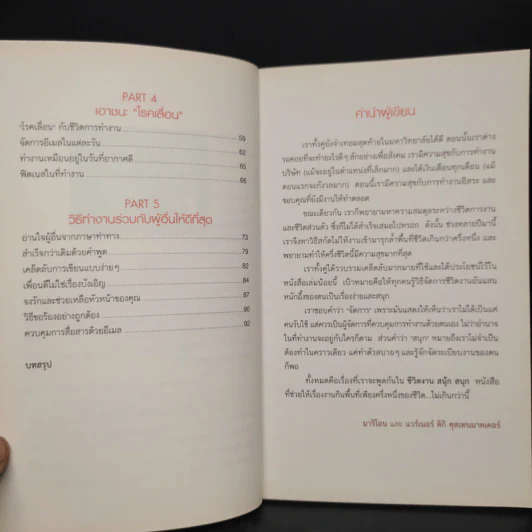 PART 4
เอาชนะ "โรคเลื่อน"
"โรคเลื่อน" กับชีวิตการทำงาน 59
จัดการอีเมลในแต่ละวัน 62
ทำงานเหมือนอยู่ในวันที่อากาศดี 65
ฟิตเนสในที่ทำงาน 66
PART 5
วิธีทำงานร่วมกับผู้อื่นให้ดีที่สุด
อ่านใจผู้อื่นจากภาษาท่าทาง 73
สำเร็จกว่าเดิมด้วยคำพูด 79
เคล็ดลับการเขียนแบบง่ายๆ 82
เพื่อนดีไม่ใช่เรื่องบังเอิญ 84
จงรักและช่วยเหลือหัวหน้าของคุณ 87
วิธีขอร้องอย่างถูกต้อง 90
ควบคุมการสื่อสารด้วยอีเมล 92
บทสรุป
คำนำผู้เขียน
เราทั้งคู่ยังจำเทอมสุดท้ายในมหาวิทยาลัยได้ดี ตอนนั้นเราต่าง
รอคอยที่จะทำอะไรดีๆ สักอย่างเพื่อสังคม เรามีความสุขกับการทำงาน
บริษัท (แม้จะอยู่ในตำแหน่งที่เล็กมาก) และได้เงินเดือนทุกเดือน (แม้
ตอนแรกจะกังวลมาก) ตอนนี้เรามีความสุขกับการทำงานอิสระ และ
ขอบคุณที่ยังมีงานให้ทำตลอด
ขณะเดียวกัน เราก็พยายามหาความสมดุลระหว่างชีวิตการงาน
และชีวิตส่วนตัว ซึ่งก็ไม่ได้สำเร็จเสมอไปหรอก ดังนั้น ช่วงหลายปีมานี้
เราจึงหาวิธีสกัดไม่ให้งานเข้ามารุกล้ำพื้นที่ชีวิตเกินกว่าครึ่งหนึ่ง และ
พยายามทำให้ครึ่งชีวิตนี้มีความสุขมากที่สุด
เราทั้งคู่ได้รวบรวมเคล็ดลับมากมายที่ใช้และได้ประโยชน์ไว้ใน
หนังสือเล่มน้อยนี้ เป้าหมายคือให้ทุกคนรู้วิธีจัดการชีวิตงานอันแสน
หนักอึ้งของตนเป็นเรื่องง่ายและสนุก
เราชอบคำว่า "จัดการ" เพราะมันแสดงให้เห็นว่าเราไม่ได้เป็นแค่
คนรับใช้ แต่ควรเป็นผู้จัดการที่ควบคุมการทำงานด้วยตนเอง ไม่ว่าอำนาจ
ในที่ทำงานจะอยู่กับใครก็ตาม ส่วนคำว่า "สนุก" หมายถึงเราไม่จำเป็น
ต้องทำในคราวเดียว แค่ทำตัวสบายๆ และรู้จักจัดระเบียบงานของตน
ก็พอ
ทั้งหมดคือเรื่องที่เราจะพูดกันใน ชีวิตงาน สนุ้ก สนุก หนังสือ
ที่ช่วยให้เรื่องงานกินพื้นที่เพียงครึ่งหนึ่งของชีวิต...ไม่เกินกว่านี้
มาริโอน และ แวร์เนอร์ ทิกิ คุสเทนมาคเคอร์